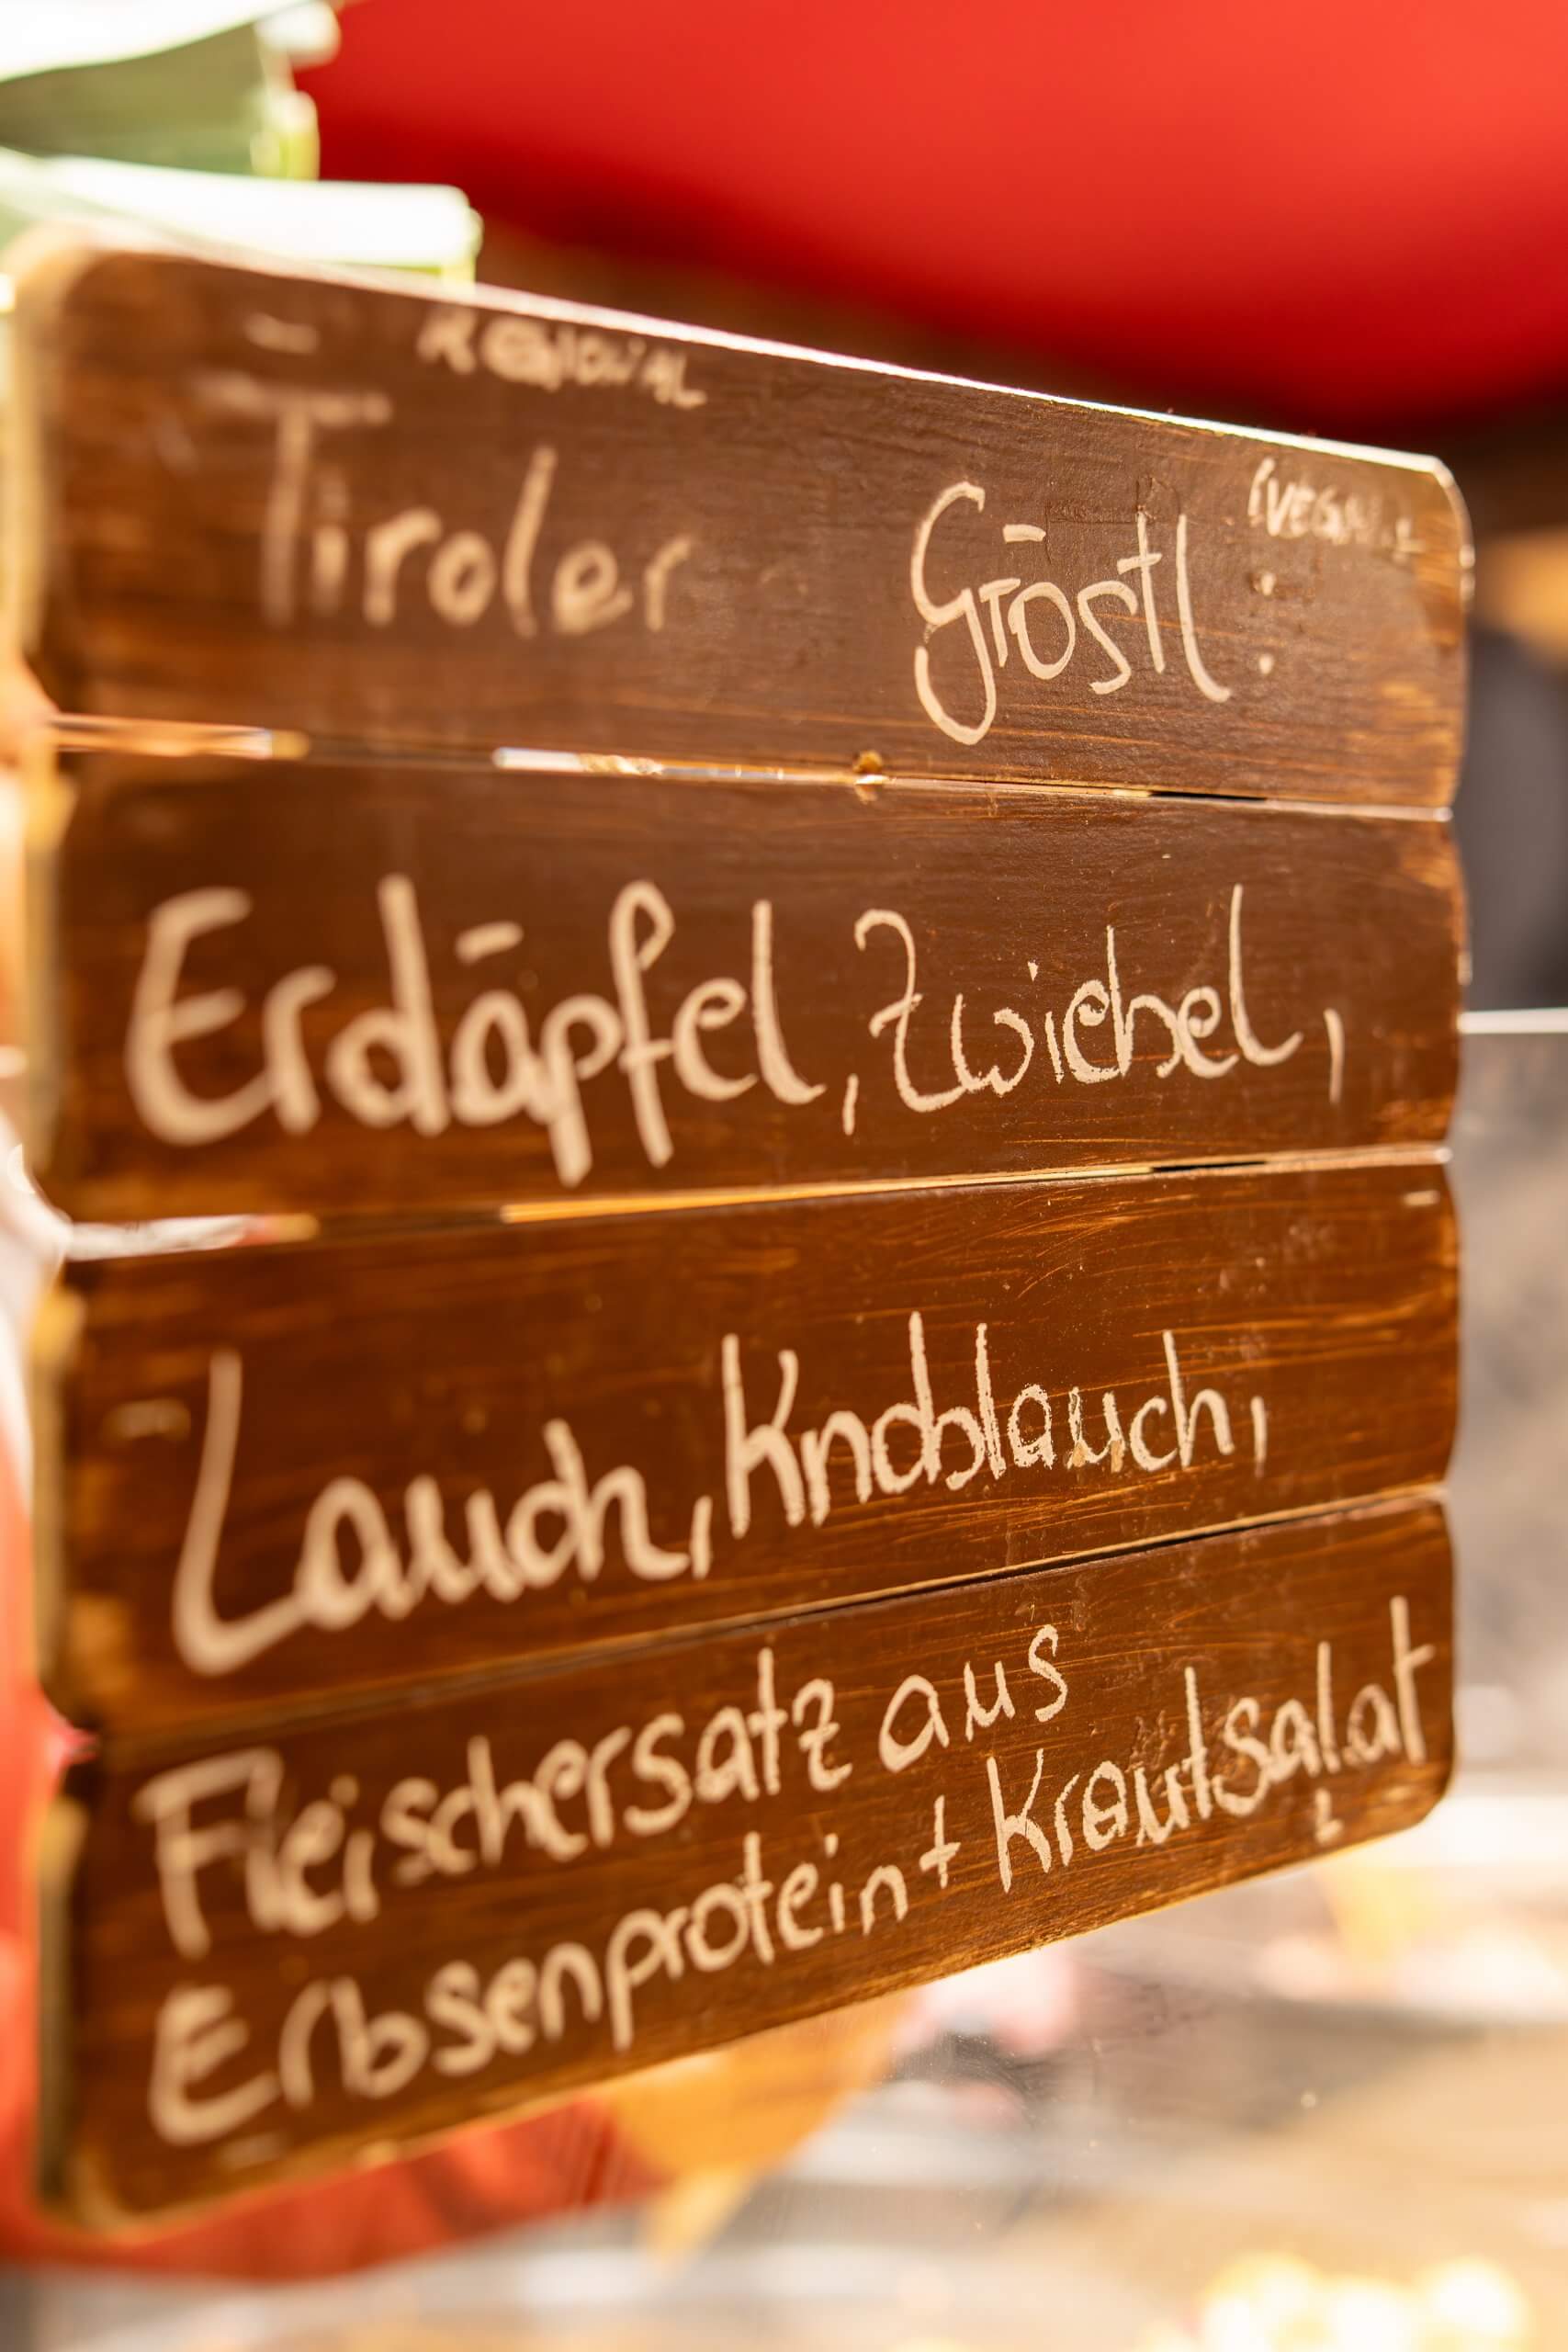 REGIONAL
(VEGAN)
Tiroler Gröstl:
Erdäpfel, Zwiebel,
Lauch, Knoblauch,
Fleischersatz aus
Erbsenprotein + Krautsalat